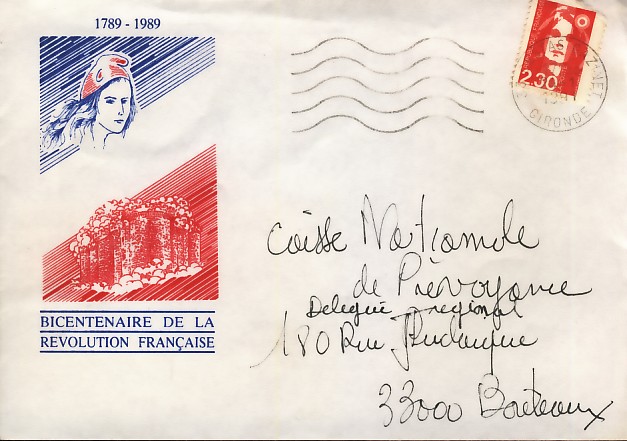 1789 - 1989
2.30
GIRONDE
BICENTENAIRE DE LA
REVOLUTION FRANÇAISE
Caisse Nationale
de Prévoyance
Délégué régional
180 Rue Judaïque
33000 Bordeaux